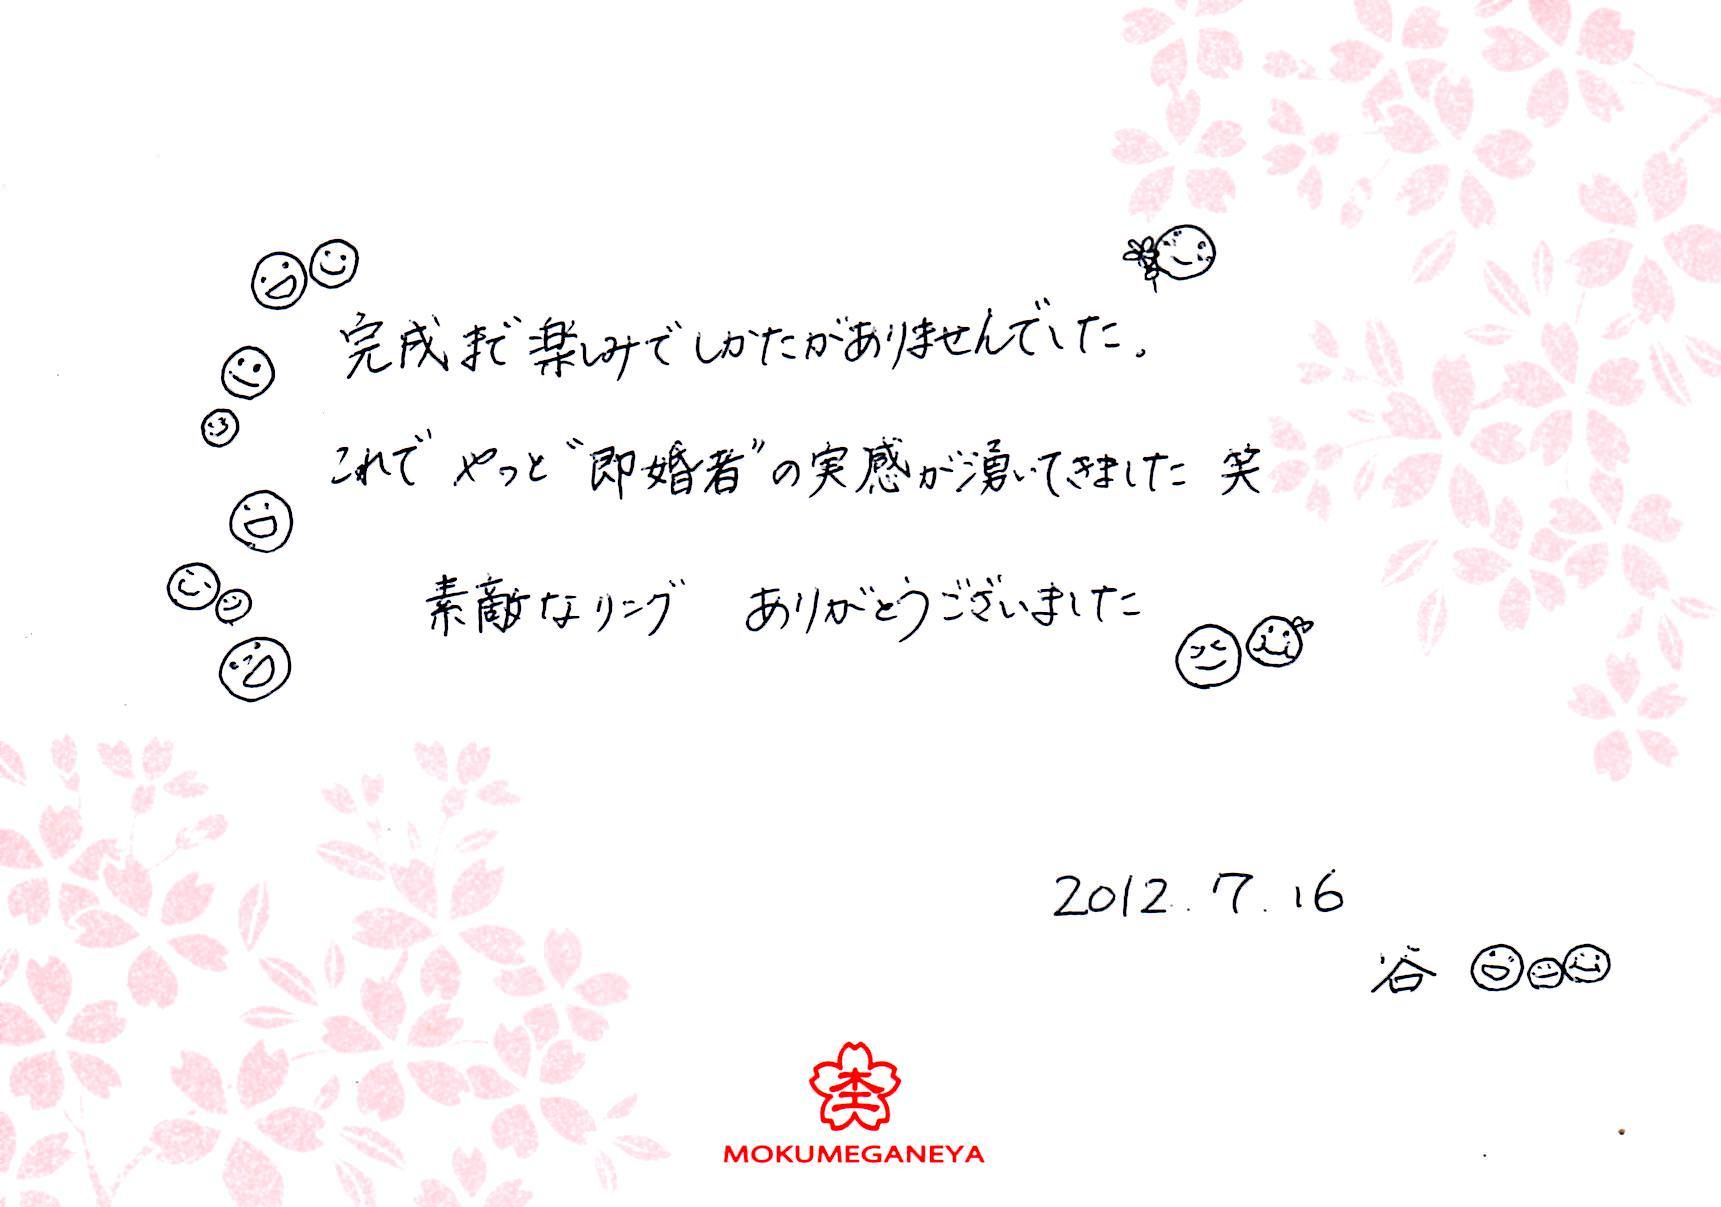 完成まで楽しみでしかたがありませんでした。
これで やっと"即婚者"の実感が湧いてきました 笑
素敵なリング ありがとうございました
2012.7.16
谷
MOKUMEGANEYA